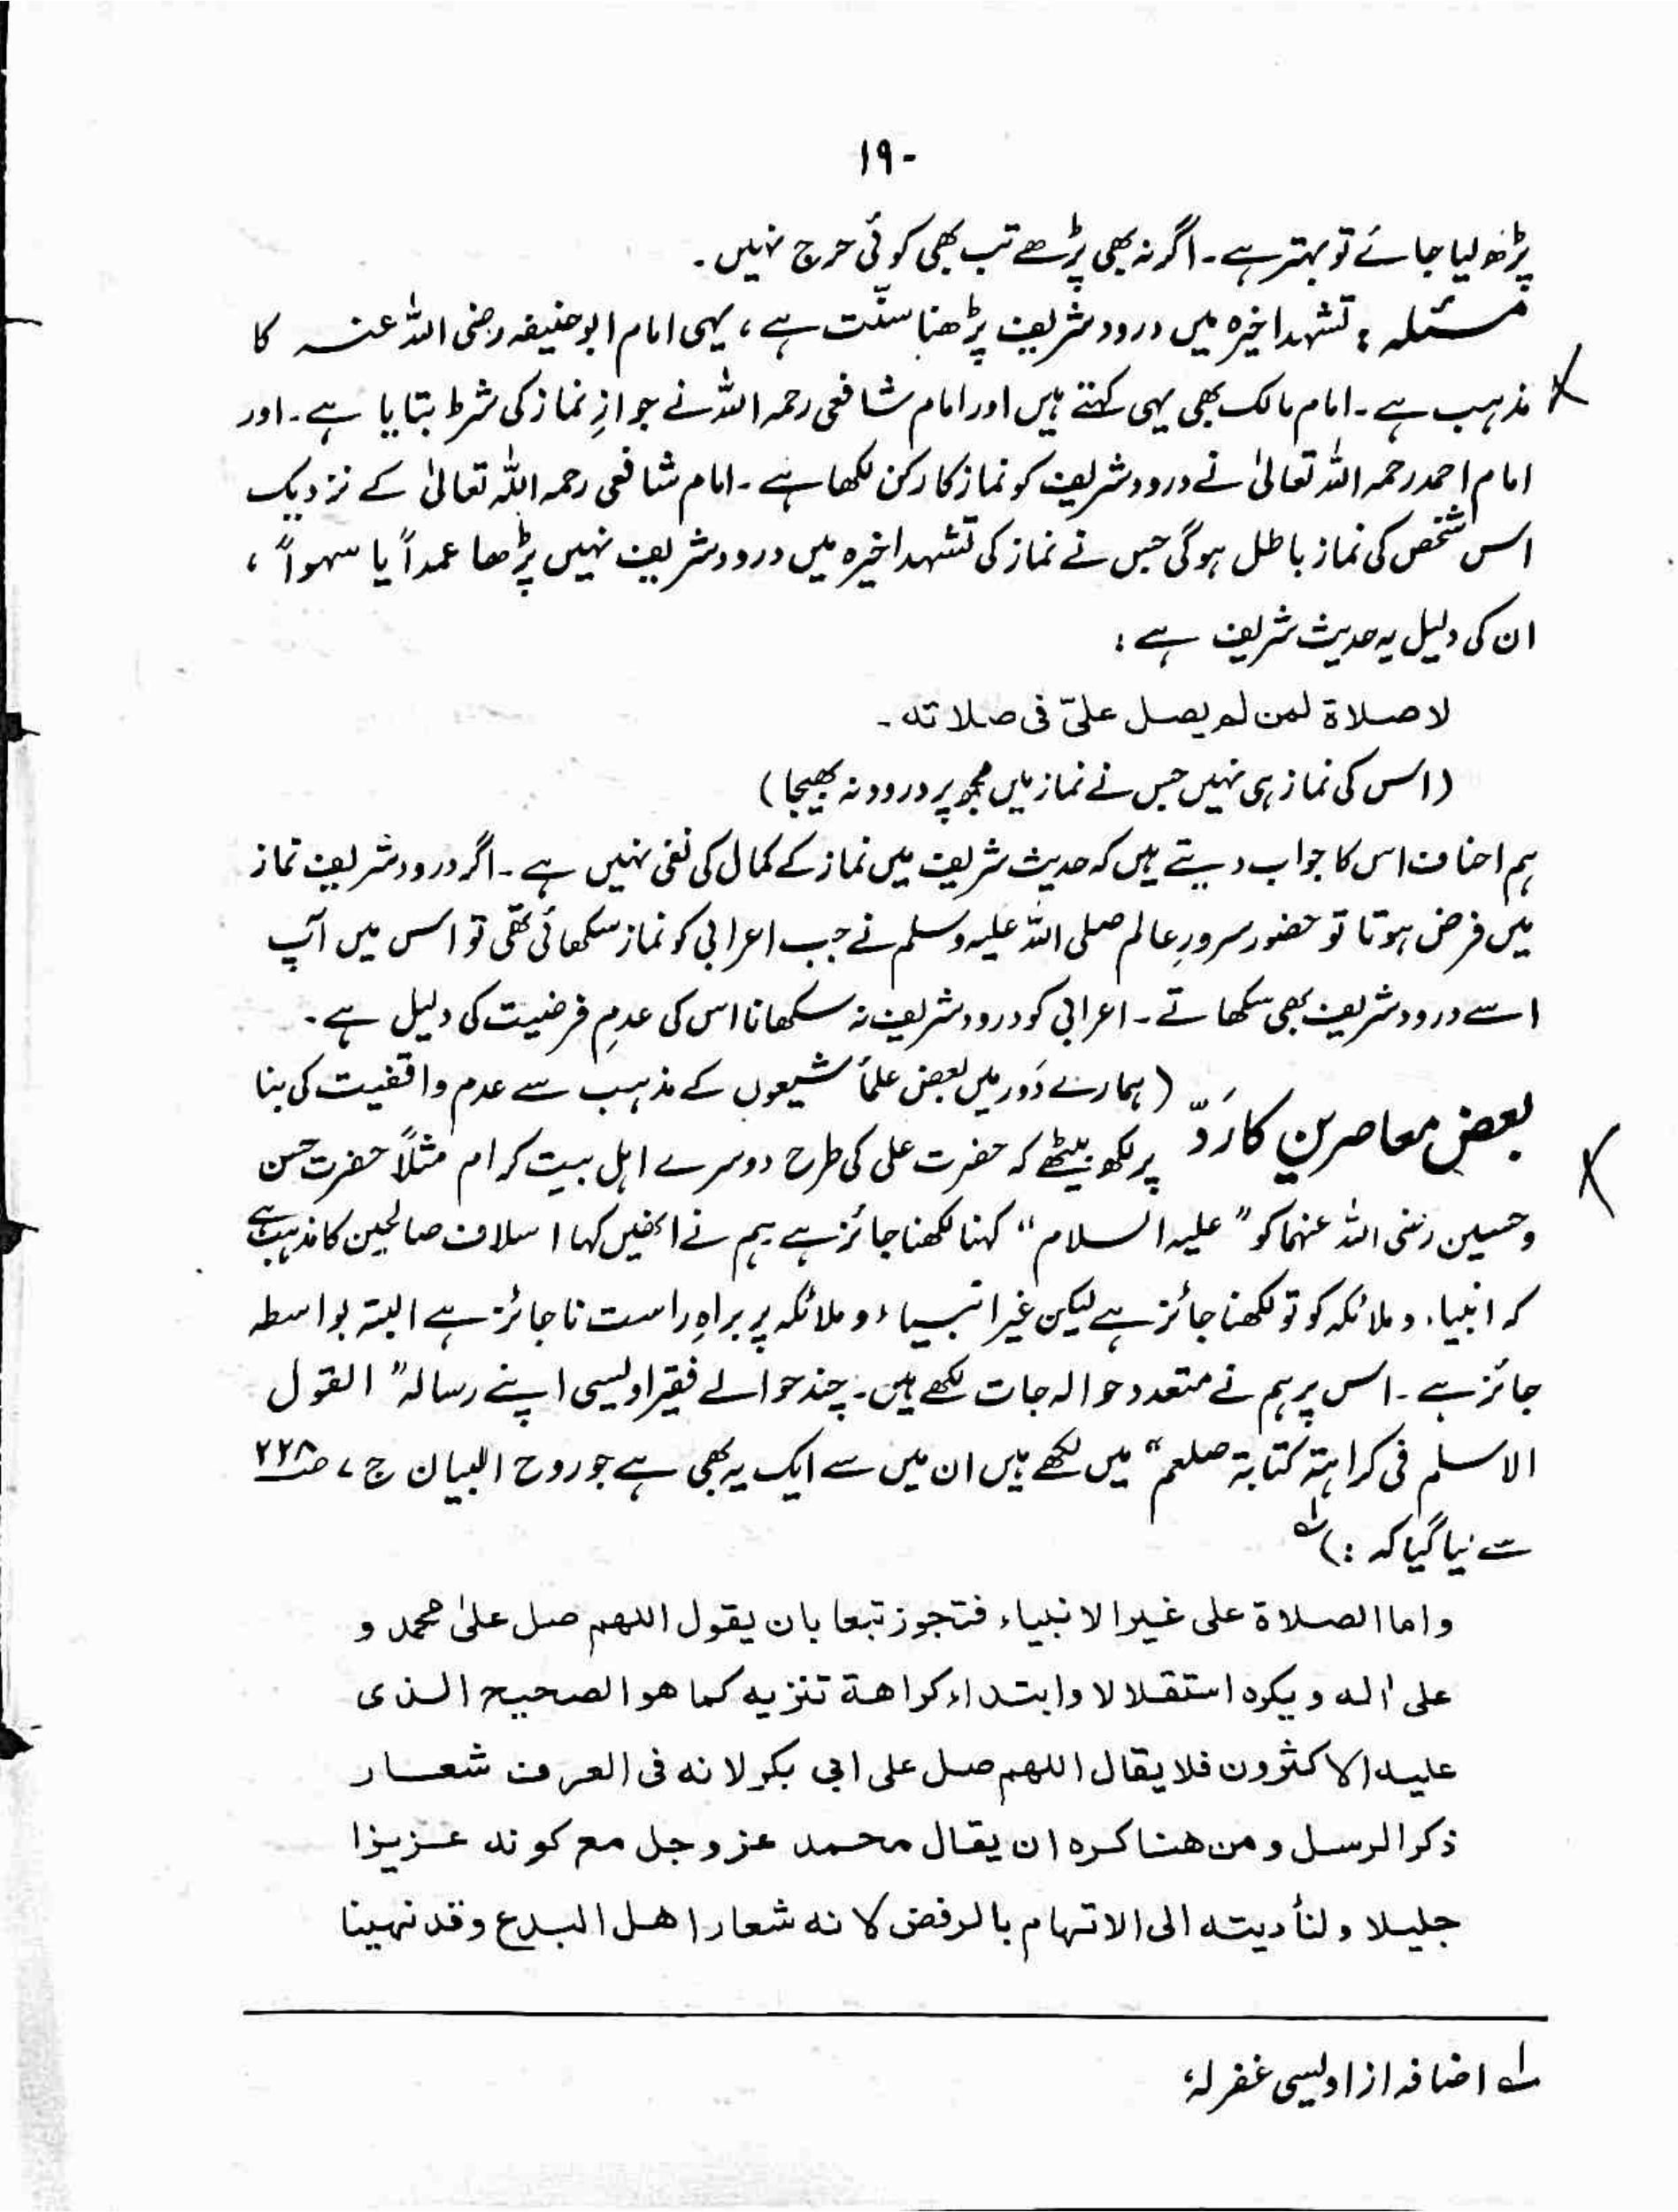 ۱۹۰
پڑھ لیا جائے تو بہتر ہے۔ اگر نہ بھی پڑھے تب بھی کوئی حرج نہیں۔
مسئلہ : تشہد اخیرہ میں درود شریف پڑھنا سنّت ہے ، یہی امام ابوحنیفہ رضی اللہ عنہ کا
مذہب ہے۔ امام مالک بھی یہی کہتے ہیں اور امام شافعی رحمہ اللہ نے جوازِ نماز کی شرط بتایا ہے۔ اور
امام احمد رحمہ اللہ تعالیٰ نے درود شریف کو نماز کا رکن لکھا ہے۔ امام شافعی رحمہ اللہ تعالیٰ کے نزدیک
اس شخص کی نماز باطل ہوگی جس نے نماز کی تشہد اخیرہ میں درود شریف نہیں پڑھا عمداً یا سہواً ،
ان کی دلیل یہ حدیث شریف ہے :
لا صلاة لمن لم يصل علىّ فى صلاته۔
(اس کی نماز ہی نہیں جس نے نماز میں مجھ پر درود نہ بھیجا)
ہم احناف اس کا جواب دیتے ہیں کہ حدیث شریف میں نماز کے کمال کی نفی نہیں ہے۔ اگر درود شریف نماز
میں فرض ہوتا تو حضور سرورِ عالم صلی اللہ علیہ وسلم نے جب اعرابی کو نماز سکھائی تھی تو اس میں آپ
اسے درود شریف بھی سکھاتے۔ اعرابی کو درود شریف نہ سکھانا اس کی عدمِ فرضیت کی دلیل ہے۔
بعض معاصرین کا رَدّ (ہمارے دَور میں بعض علمأ شیعوں کے مذہب سے عدم واقفیت کی بنا
پر لکھ بیٹھے کہ حضرت علی کی طرح دوسرے اہل بیت کرام مثلاً حضرت حسن
وحسین رضی اللہ عنہما کو "علیہ السلام" کہنا لکھنا جائز ہے ہم نے انھیں کہا اسلاف صالحین کا مذہب ہے
کہ انبیاء و ملائکہ کو تو لکھنا جائز ہے لیکن غیر انبیاء و ملائکہ پر براہِ راست ناجائز ہے البتہ بواسطہ
جائز ہے۔ اس پر ہم نے متعدد حوالہ جات لکھے ہیں۔ چند حوالے فقیر اویسی اپنے رسالہ "القول
الاسلم فی کراہتہ کتابتہ صلعم" میں لکھے ہیں ان میں سے ایک یہ بھی ہے جو روح البیان ج ۷ ص ۲۲۸
سے لیا گیا کہ :)؂۱
واما الصلاة على غير الانبياء فتجوز تبعا بان يقول اللهم صل على محمد و
على اٰله ويكره استقلالا وابتداء كراهة تنزيه كما هو الصحيح الذى
عليه الاكثرون فلا يقال اللهم صل على ابى بكر لانه فى العرف شعار
ذكر الرسل ومن هنا كره ان يقال محمد عز وجل مع كونه عزيزا
جليلا ولتأديته الى الاتهام بالرفض لانه شعار اهل البدع وقد نهينا
؂۱ اضافہ از اویسی غفرلہٗ